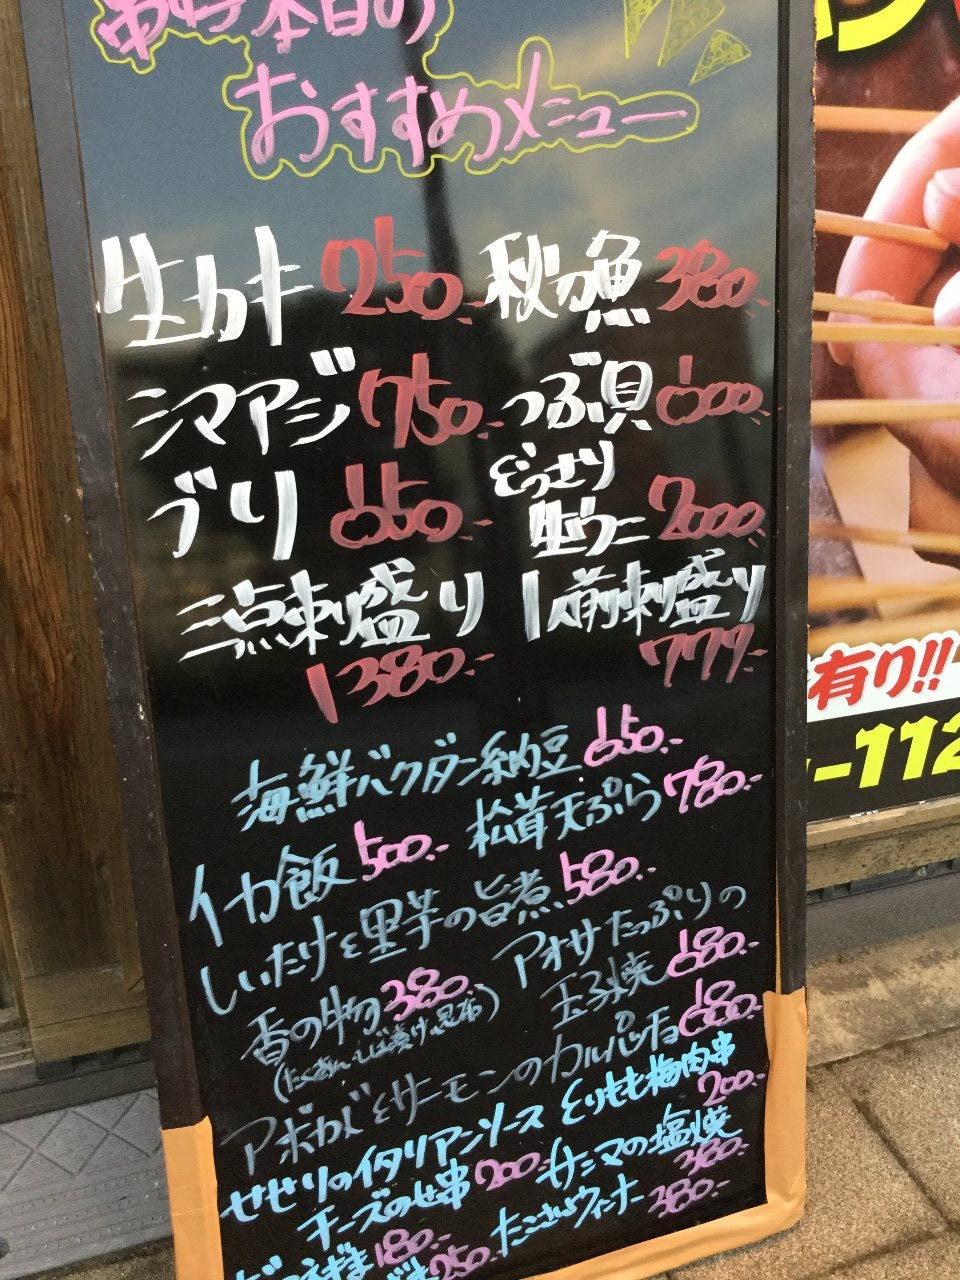 本日の
おすすめメニュー
生カキ 750.- 秋刀魚 380.-
シマアジ 750.- つぶ貝 600.-
ブリ 650.- どっさり
生ウニ 2000.-
三点刺盛り 1人前刺盛り
1380.- 777.-
海鮮バクダン納豆 650.-
イカ飯 500.- 松茸天ぷら 780.-
しいたけと里芋の旨煮 580.-
香の物 380.- アオサたっぷりの
(たくあん・しば漬け・昆布) 玉子焼 680.-
アボカドとサーモンのカルパッチョ 680.-
せせりのイタリアンソース とりもも梅肉串
チーズのせ串 200.- 200.-
サンマの塩焼
380.-
180.- たこさんウィンナー 380.-
250.-
有り!!
-112